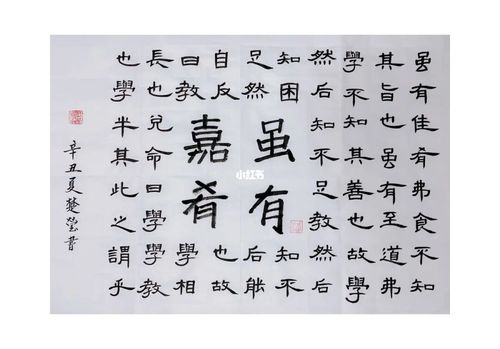 虽有佳肴弗食不知
其旨也虽有至道弗
學不知其善也故學
然后知不足教然后
知困知不
足然后能
自反也故
曰教學相
長也兌命曰學學教
也學半其此之謂乎
虽有
嘉肴
辛丑夏楚書
小红书